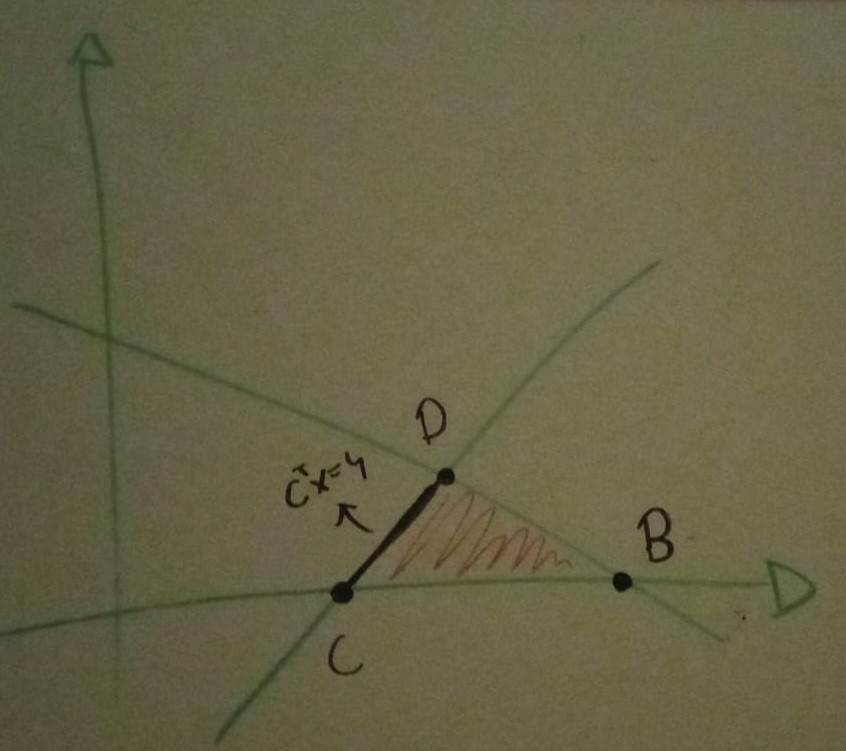 D
cᵀx=4
B
C